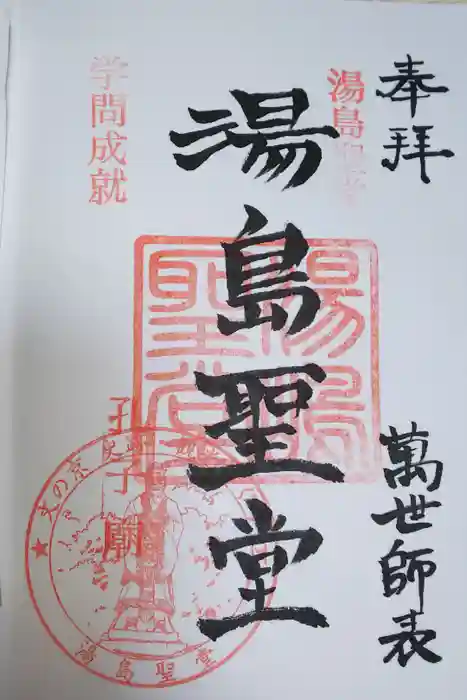 奉拝
萬世師表
湯島聖堂
湯島聖堂
湯島聖堂
学問成就
孔子廟
★文の京 文
湯島聖堂